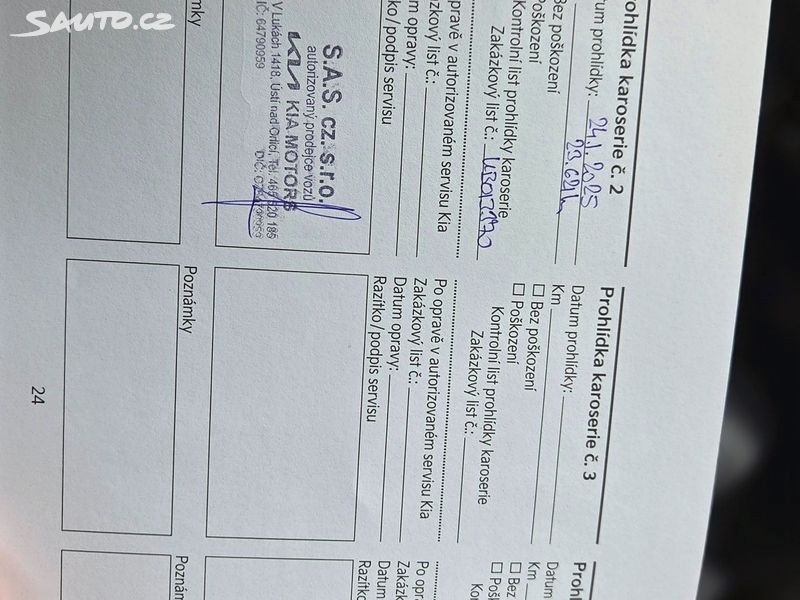 SAUTO.CZ
rohlídka karoserie č. 2
tum prohlídky: 24.1.2025
23.621 k
Bez poškození
Poškození
Kontrolní list prohlídky karoserie
Zakázkový list č.:
opravě v autorizovaném servisu Kia
kový list č.:
m opravy:
ko/podpis servisu
S.A.S. cz. s.r.o.
autorizovaný prodejce vozů
KIA KIA MOTORS
V Lukách 1418, Ústí nad Orlicí, Tel: 465 520 185
IČ: 64790959
mky
Prohlídka karoserie č. 3
Datum prohlídky:
Km
Bez poškození
Poškození
Kontrolní list prohlídky karoserie
Zakázkový list č.:
Po opravě v autorizovaném servisu Kia
Zakázkový list č.:
Datum opravy:
Razítko/podpis servisu
Poznámky
24
Prohl
Datum
Km
Bez
Pošk
Kon
Po opra
Zakáz
Datum
Razítko
Poznám